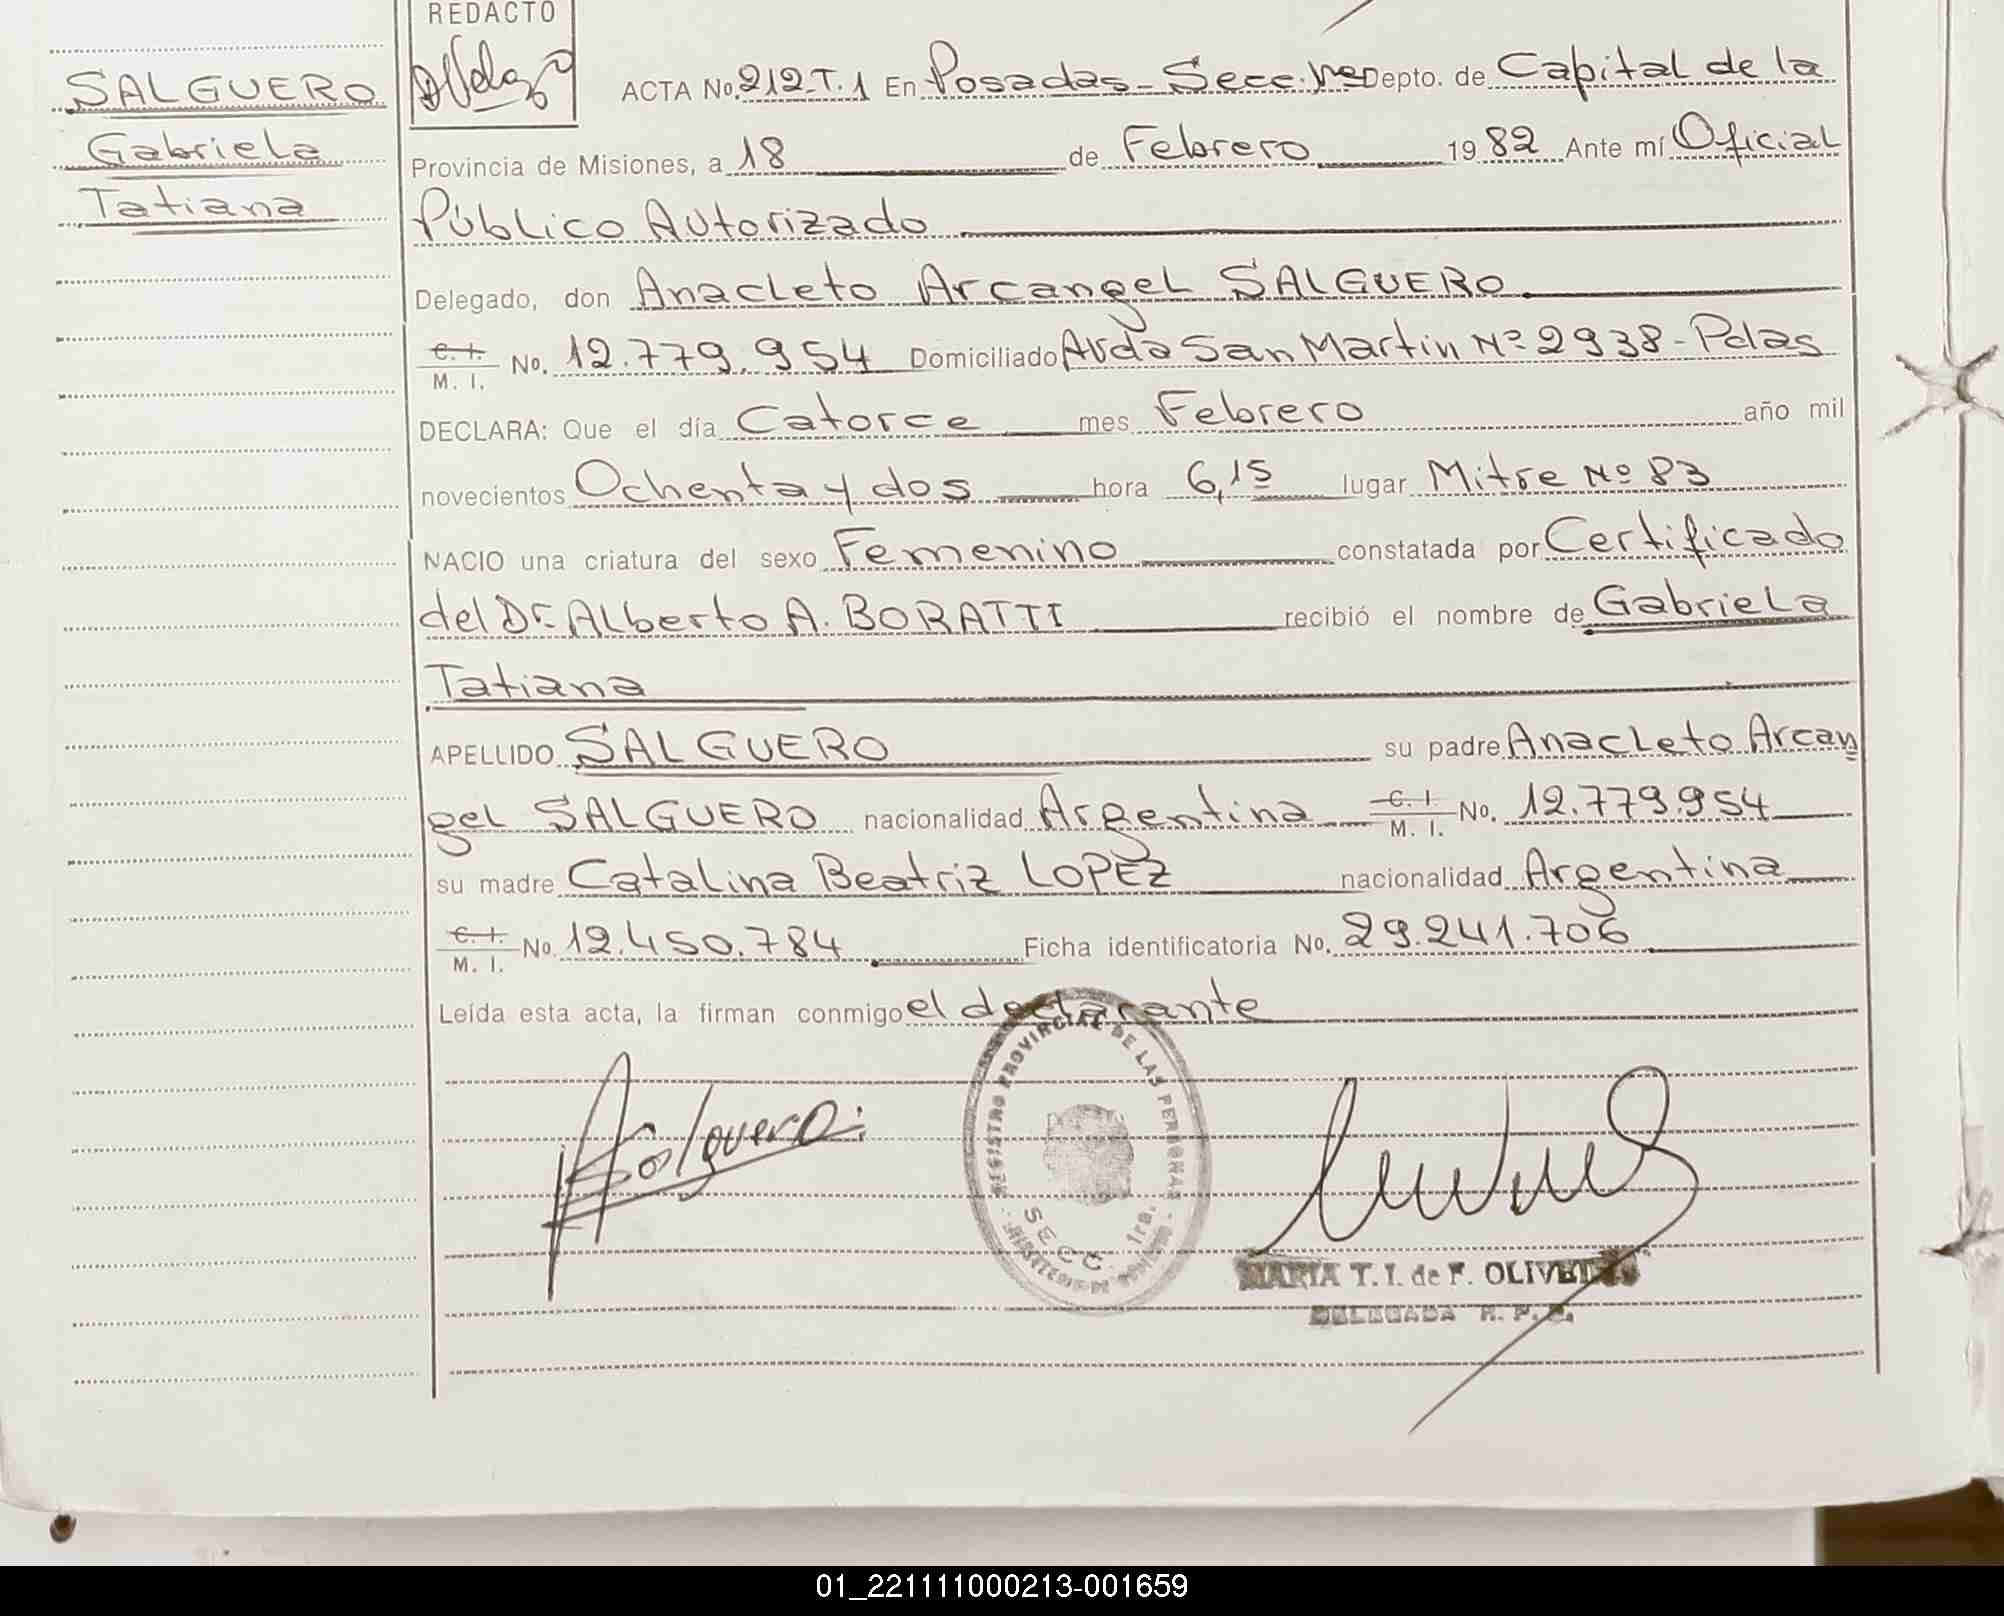 REDACTO
SALGUERO
Gabriela
Tatiana
ACTA No. 212-T.1 En Posadas-Secc. 1ra Depto. de Capital de la
Provincia de Misiones, a 18 de Febrero 1982 Ante mí Oficial
Público Autorizado
Delegado, don Anacleto Arcangel SALGUERO
C. I.
M. I. No. 12.779.954 Domiciliado Avda San Martin Nº 2938-Pdas
DECLARA: Que el día Catorce mes Febrero año mil
novecientos Ochenta y dos hora 6,15 lugar Mitre Nº 83
NACIO una criatura del sexo Femenino constatada por Certificado
del Dr. Alberto A. BORATTI recibió el nombre de Gabriela
Tatiana
APELLIDO SALGUERO su padre Anacleto Arcan
gel SALGUERO nacionalidad Argentina C. I.
M. I. No. 12.779.954
su madre Catalina Beatriz LOPEZ nacionalidad Argentina
C. I.
M. I. No. 12.450.784 Ficha identificatoria No. 29.241.706
Leída esta acta, la firman conmigo el declarante
ASalguero
REGISTRO PROVINCIAL DE LAS PERSONAS
SECC. 1ra.
MARIA T. I. de F. OLIVETTI
DELEGADA R. P. P.
01_221111000213-001659